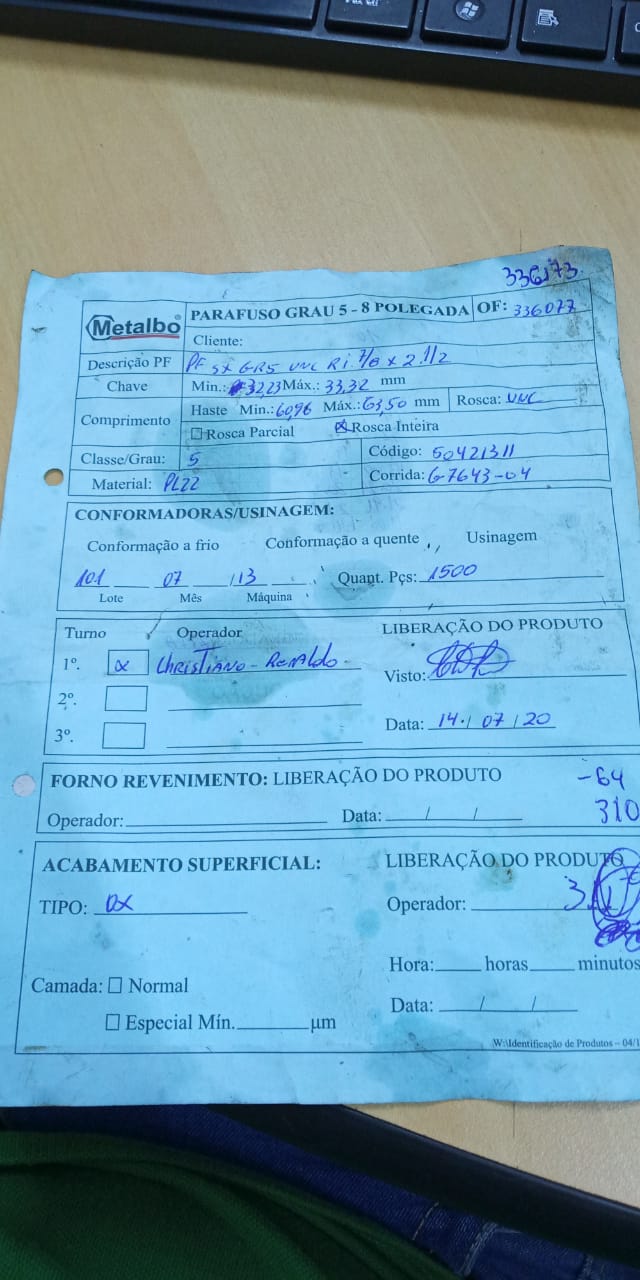 336173
Metalbo
PARAFUSO GRAU 5 - 8 POLEGADA OF: 336077
Cliente:
Descrição PF PF SX GR5 UNC RI 7/8 x 2.1/2
Chave Min.: 32,23 Máx.: 33,32 mm
Comprimento Haste Min.: 60,96 Máx.: 63,50 mm Rosca: UNC
☐ Rosca Parcial ☒ Rosca Inteira
Classe/Grau: 5 Código: 50421311
Material: PL22 Corrida: G7643-04
CONFORMADORAS/USINAGEM:
Conformação a frio Conformação a quente Usinagem
101 07 13 Quant. Pçs: 1500
Lote Mês Máquina
Turno Operador LIBERAÇÃO DO PRODUTO
1º. x Christiano - Renaldo
Visto:
2º.
3º. Data: 14/07/20
FORNO REVENIMENTO: LIBERAÇÃO DO PRODUTO -64
310
Operador: Data: / /
ACABAMENTO SUPERFICIAL: LIBERAÇÃO DO PRODUTO
TIPO: OX Operador:
Hora: horas minutos
Camada: ☐ Normal
Data: / /
☐ Especial Mín. µm
W:\Identificação de Produtos - 04/1